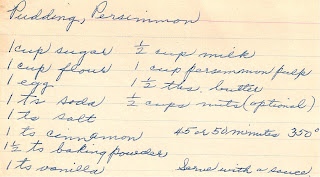 Pudding, Persimmon
1 cup sugar ½ cup milk
1 cup flour 1 cup persimmon pulp
1 egg 1½ tbs. butter
1 ts soda ½ cups nuts (optional)
1 ts salt
1 ts cinnamon 45 or 50 minutes 350°
1½ ts baking powder
1 ts vanilla Serve with a sauce